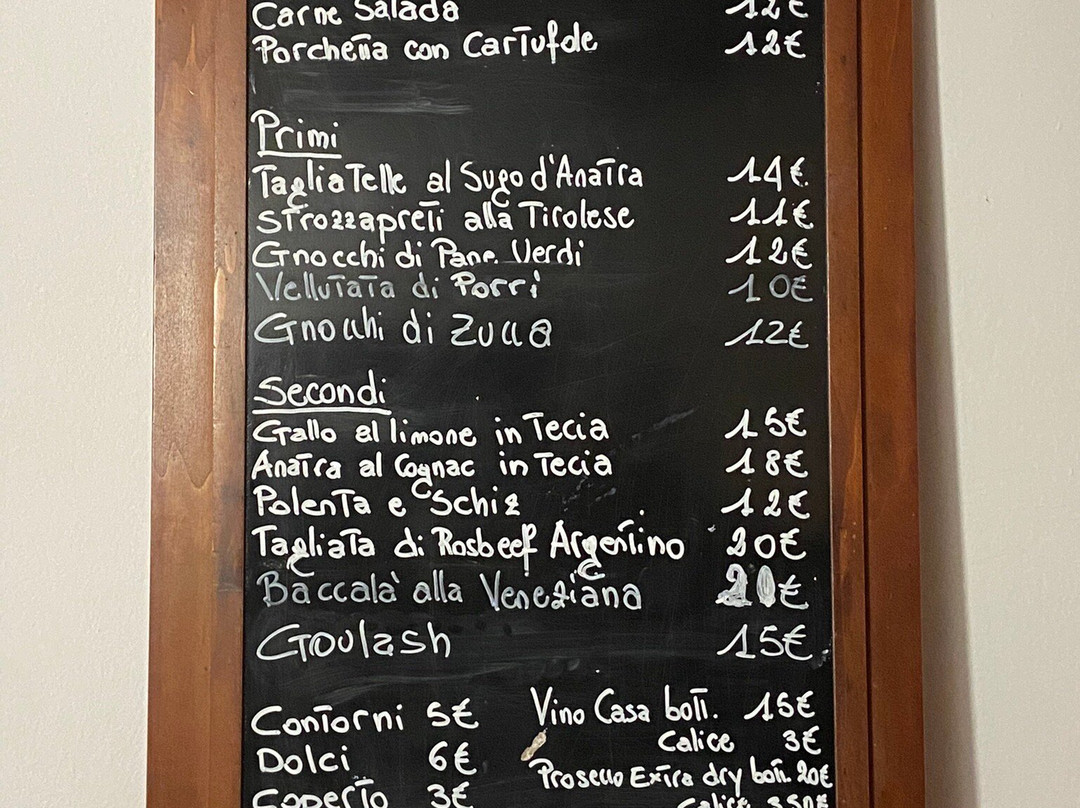 Carne Salada 12€
Porchetta con Cartufole 12€
Primi
Tagliatelle al Sugo d'Anatra 14€
Strozzapreti alla Tirolese 11€
Gnocchi di Pane Verdi 12€
Vellutata di Porri 10€
Gnocchi di Zucca 12€
Secondi
Gallo al limone in Tecia 15€
Anatra al Cognac in Tecia 18€
Polenta e Schiz 12€
Tagliata di Rosbeef Argentino 20€
Baccala' alla Veneziana 20€
Goulash 15€
Contorni 5€
Dolci 6€
Coperto 3€
Vino Casa bott. 15€
Calice 3€
Prosecco Extra dry bott. 20€
Calice 3,50€